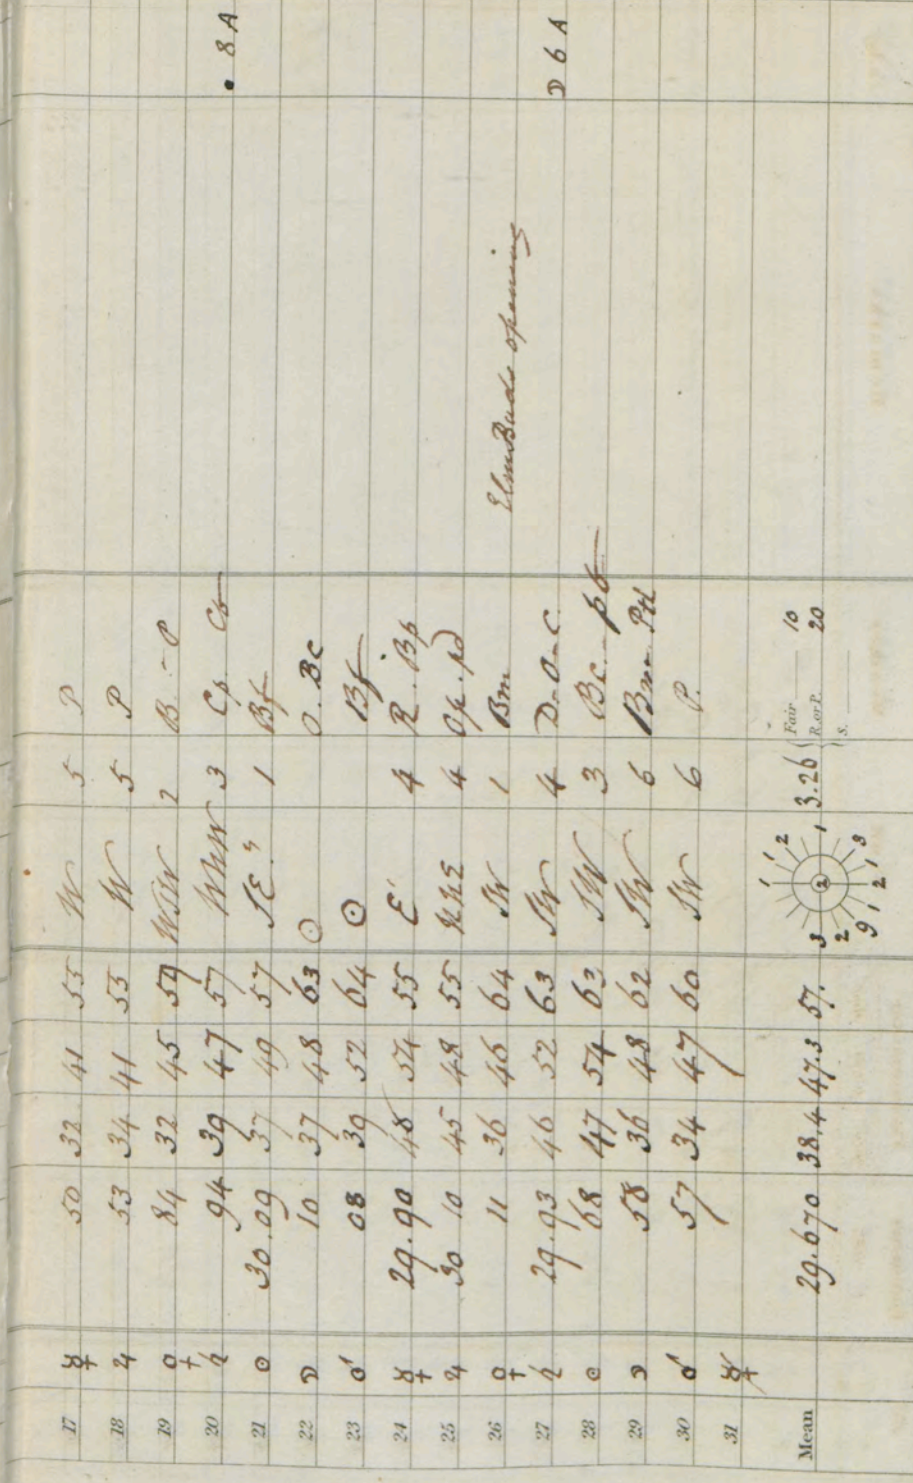 17 ☿ 50 32 41 55 W 5 P
18 ♃ 53 34 41 53 W 5 P
19 ♀ 84 32 45 59 WSW 2 B. - P
20 ♄ 94 39 47 57 WNW 3 Cp
21 ☉ 30.09 37 49 57 SE. 1 Bf • 8 A
22 ☽ 10 37 48 63 ☉ O. Bc
23 ♂ 08 39 52 64 ☉ Bf
24 ☿ 29.90 48 54 55 E 4 R. Bp
25 ♃ 30 10 45 48 55 NNE 4
26 ♀ 11 36 46 64 SW 1 Bm Elm Buds opening
27 ♄ 29.93 46 52 63 SW 4 D. O - C
28 ☉ 68 47 54 63 SW 3 Bc - ☽ 6 A
29 ☽ 58 36 48 62 SW 6 Bm
30 ♂ 57 34 47 60 SW 6 P.
31 ☿
Mean 29.670 38.4 47.3 57. 3 2 9 1 2 1 3 1 2 1 2 3.26 { Fair 10
R. or P. 20
S.